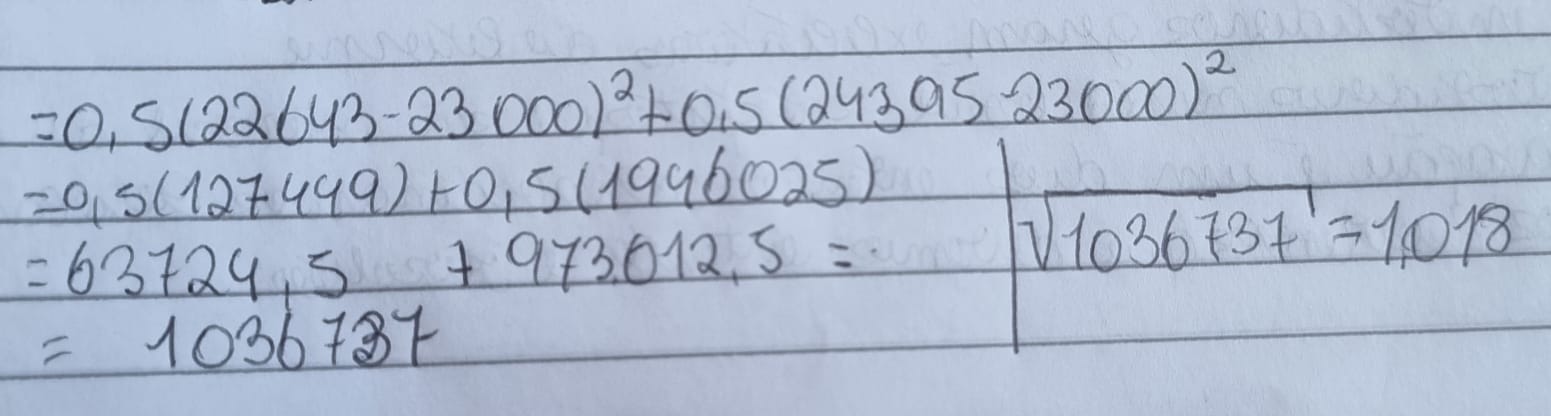 =0,5(22643-23000)²+0,5(24395-23000)²
=0,5(127449)+0,5(1946025)
=63724,5 + 973.012,5 =
= 1036737
√1036737 = 1,018